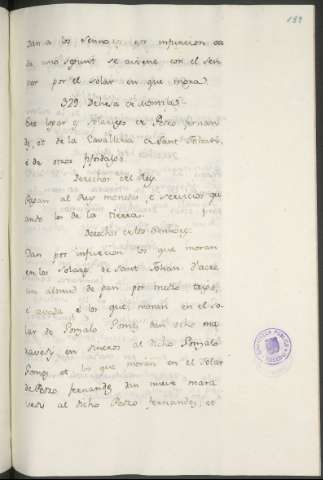 189
dan a los sennores por infurcion ca
da uno segunt se aviene con el sen
nor por el solar en que mora
329 Dehesa de
Este logar es solariego de Pero Fernan
dez et de la Cavalleria de Sant Johan
e de otros fijosdalgo
Derechos del Rey
Pagan al Rey monedas e servicios qu
ando los de la tierra.
Derechos de los Sennores
Dan por infurcion los que moran
en los solares de Sant Johan d'acre
un almud de pan por medio
e los que moran en el so
lar de Gonzalo Gomez dan ocho ma
ravedis en dineros al dicho Gonzalo
Gomez et los que moran en el solar
de Pero Fernandez dan nueve mara
vedis al dicho Pero Fernandez; et